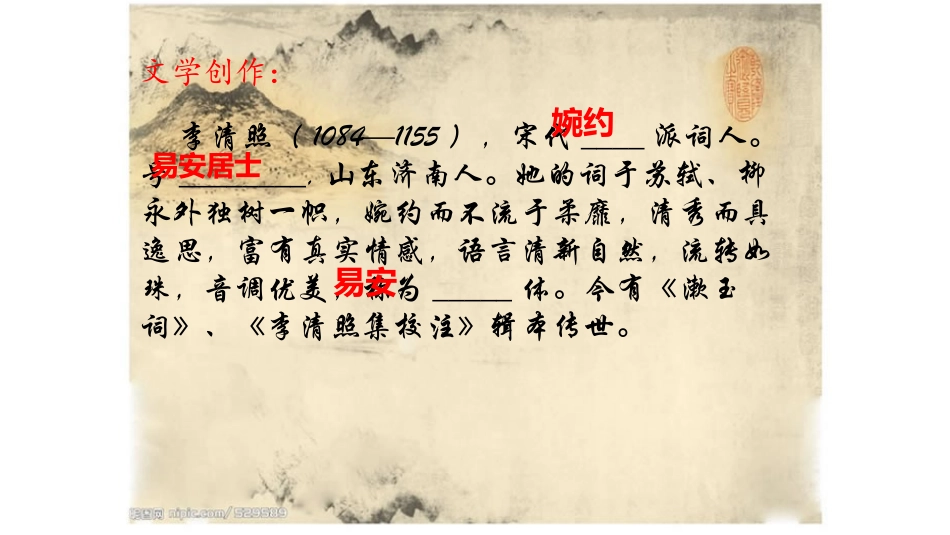 文学创作：
李清照（1084—1155），宋代 婉约 派词人。
号 易安居士 ，山东济南人。她的词于苏轼、柳
永外独树一帜，婉约而不流于柔靡，清秀而具
逸思，富有真实情感，语言清新自然，流转如
珠，音调优美，称为 易安 体。今有《漱玉
词》、《李清照集校注》辑本传世。
昵图网 nipic.com/529589